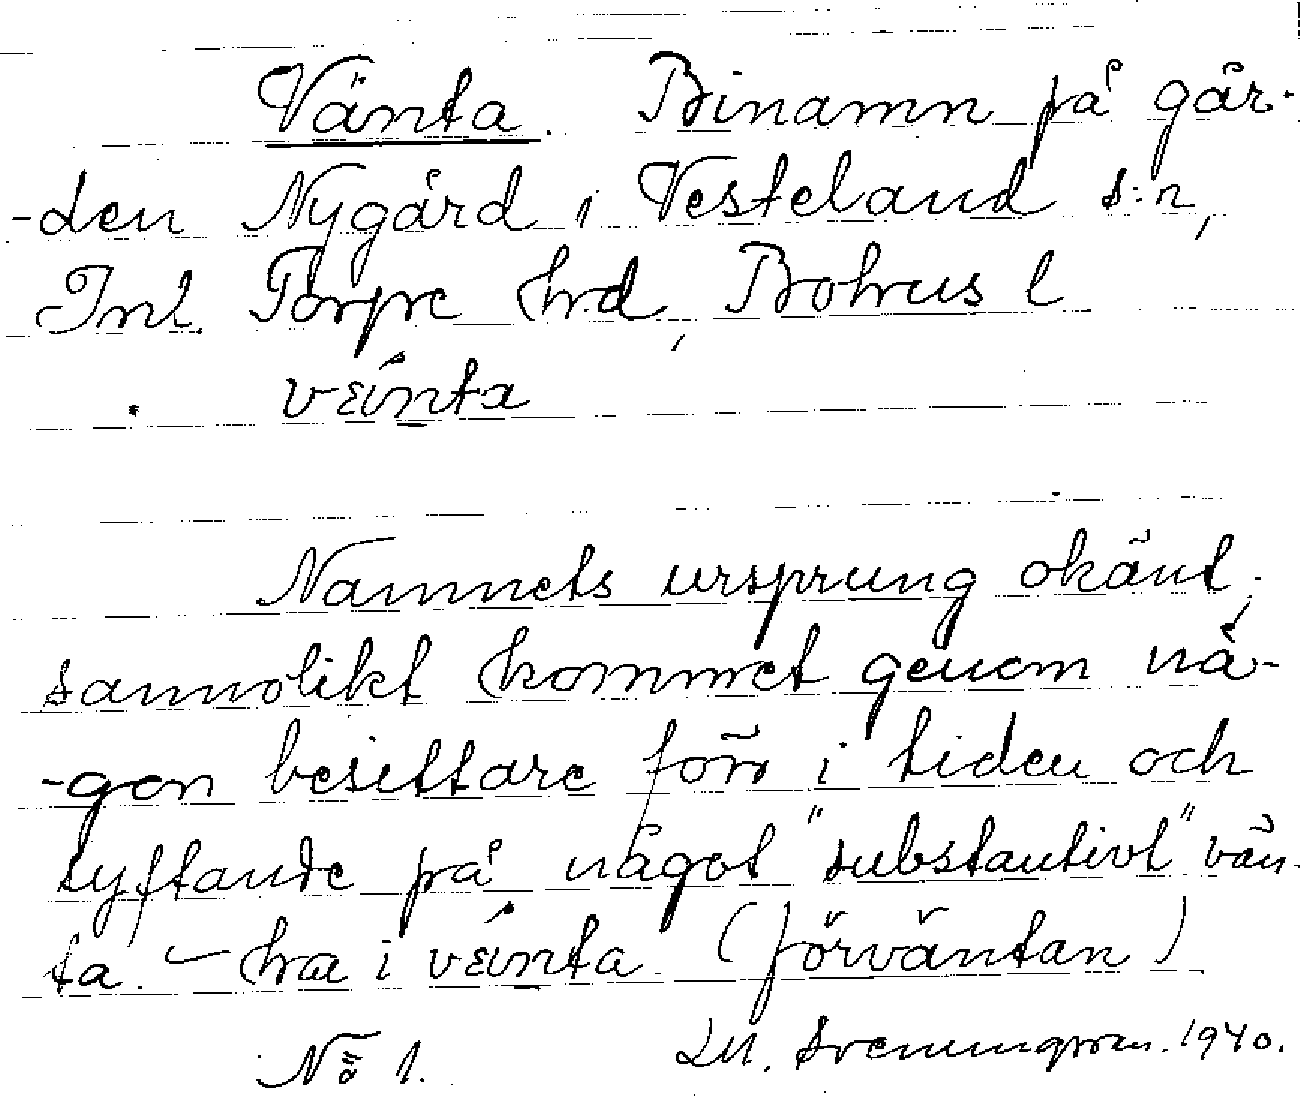 Vänta. Binamn på går-
-den Nygård i Vesteland s:n,
Inl. Torpe hrd, Bohus l
veinta
Namnets ursprung okänt,
sannolikt kommet genom nå-
-gon besittare förr i tiden och
syftande på något "substantivt" vän-
ta. – ha i veinta (förväntan)
No 1. 1940.